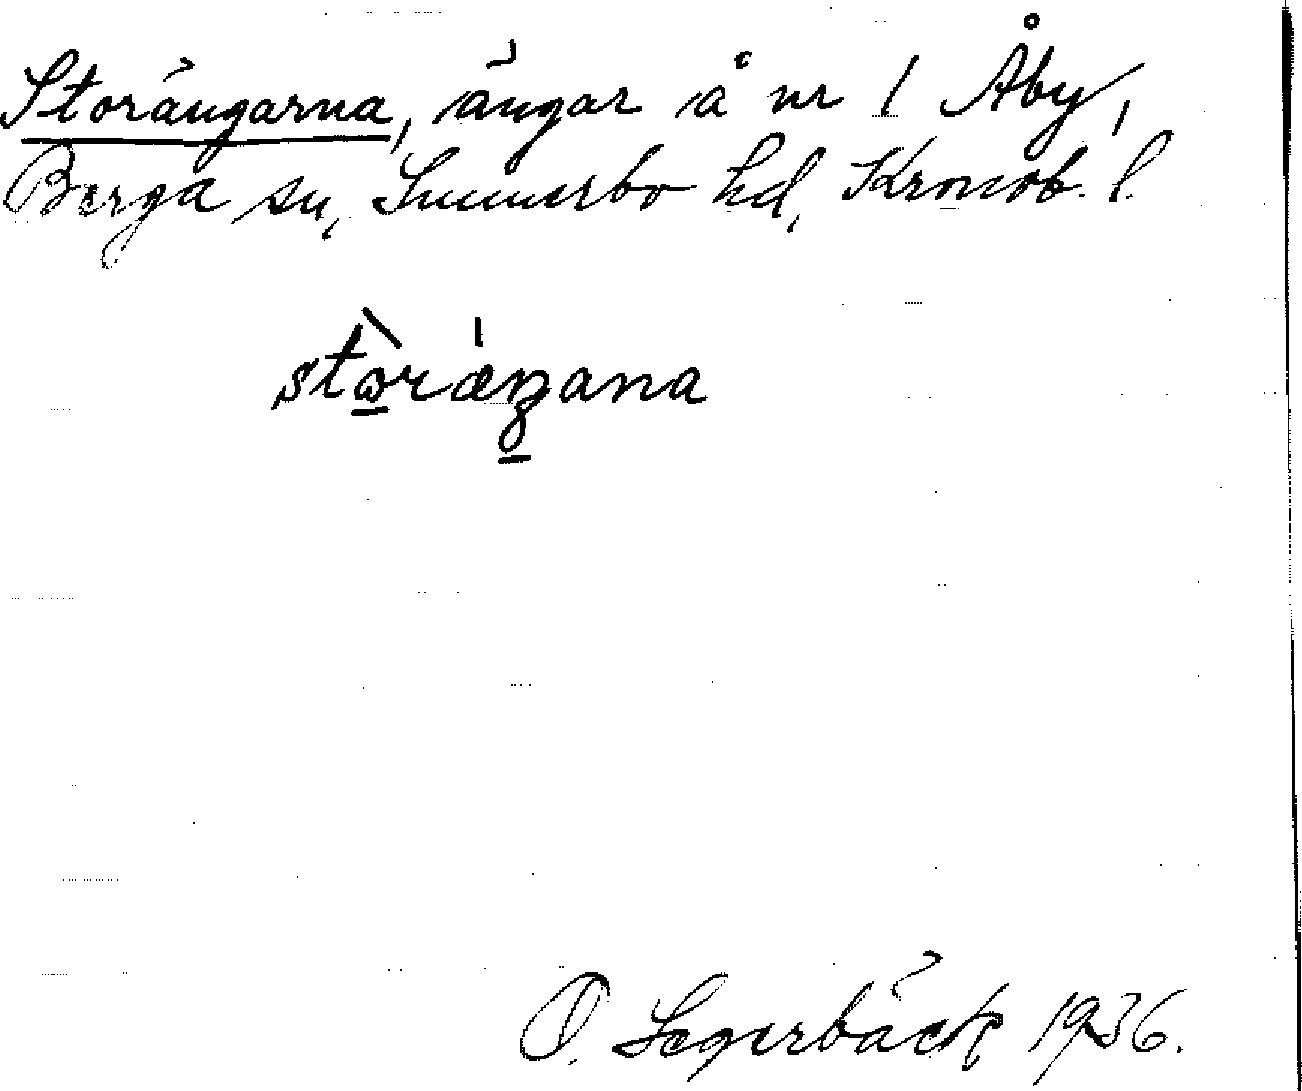 Storängarna, ängar å nr 1 Åby,
Berga sn, Sunnerbo hd, Kronob. l.
stòrǽŋana
O. Segerbäck 1936.